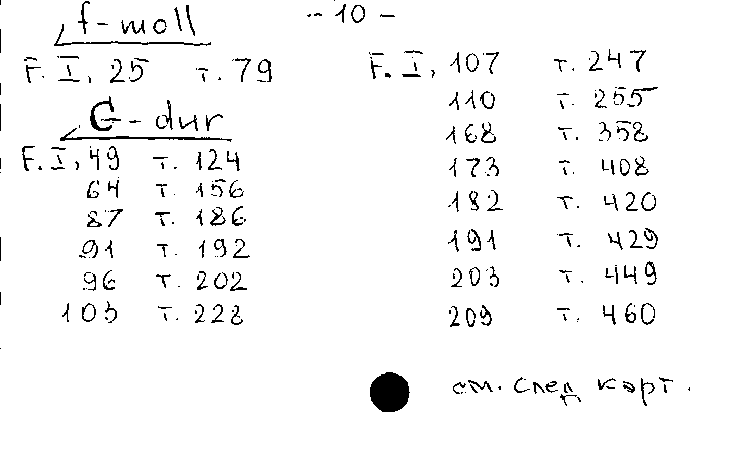 f-moll
- 10 -
F. I, 25 т. 79
G-dur
F. I, 49 т. 124
64 т. 156
87 т. 186
91 т. 192
96 т. 202
103 т. 228
F. I, 107 т. 247
110 т. 255
168 т. 358
173 т. 408
182 т. 420
191 т. 429
203 т. 449
209 т. 460
см. след карт.